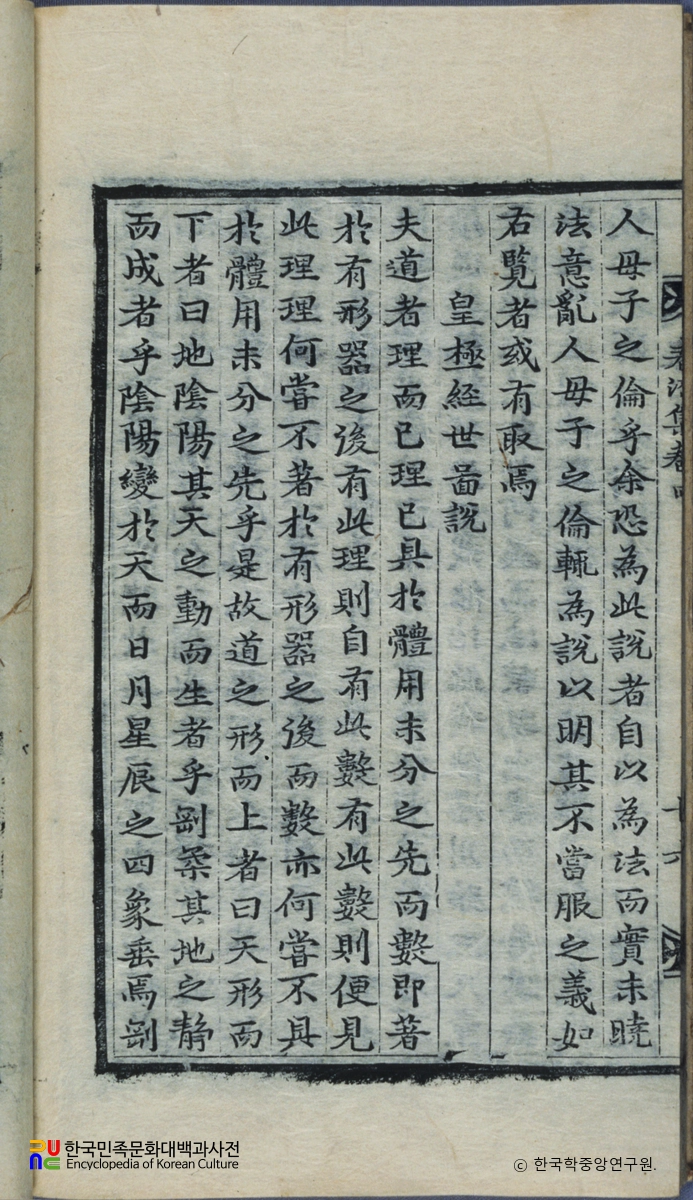 人母子之倫乎余恐為此說者自以為法而實未曉
法意亂人母子之倫輒為說以明其不當服之義如
右覽者或有取焉
皇極経世啚說
夫道者理而已理已具於體用未分之先而數即著
於有形器之後有此理則自有此數有此數則便見
此理理何嘗不著於有形器之後而數亦何嘗不具
於體用未分之先乎是故道之形而上者曰天形而
下者曰地陰陽其天之動而生者乎剛柔其地之静
而成者乎陰陽變於天而日月星辰之四象垂焉剛
集卷四
十六
한국민족문화대백과사전
Encyclopedia of Korean Culture
ⓒ 한국학중앙연구원.